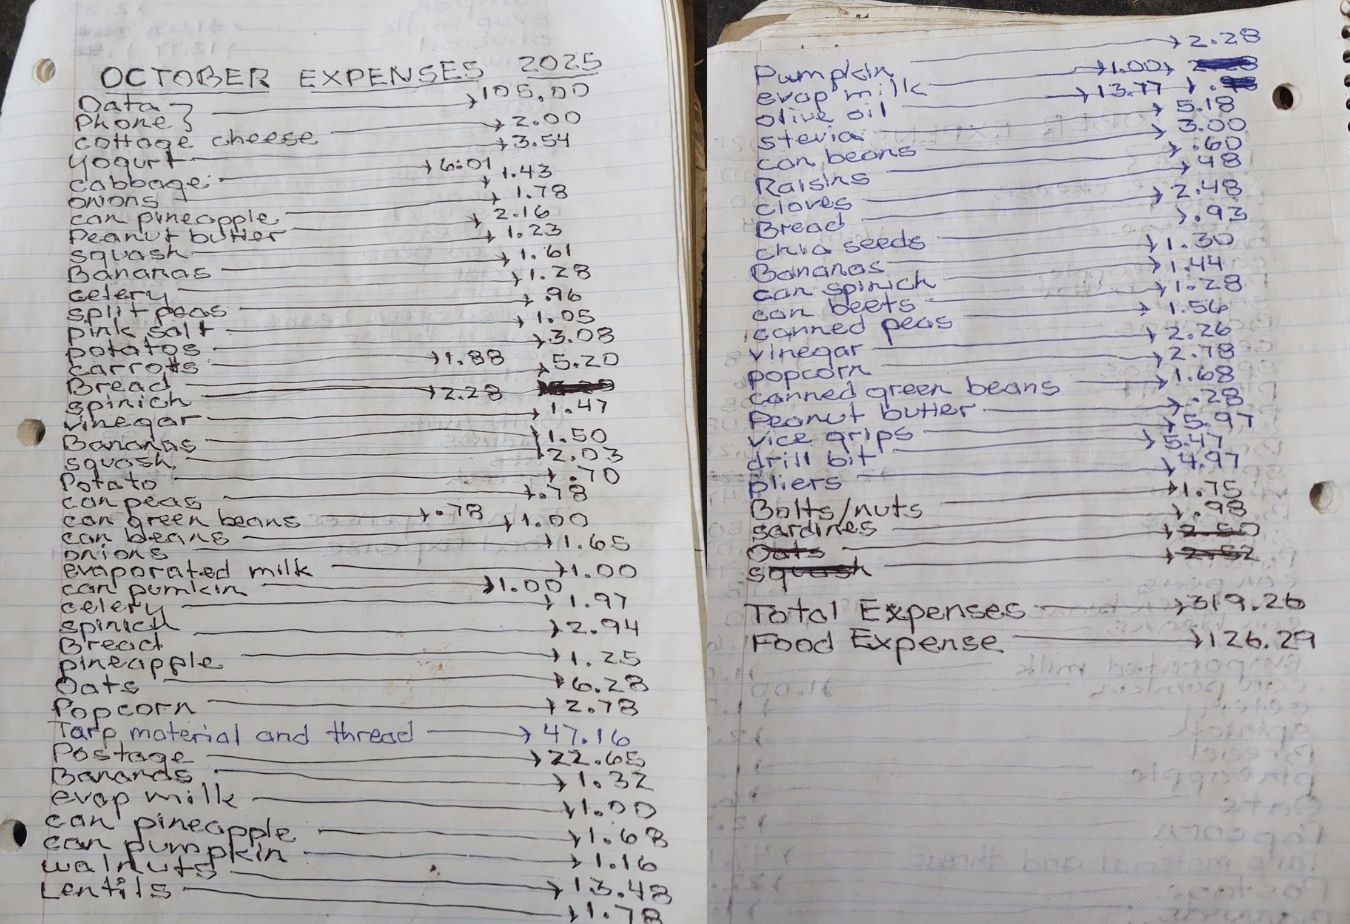 OCTOBER EXPENSES 2025
Data
Phone } → 105.00
cottage cheese → 2.00
Yogurt → 3.54
cabbage → 6.01
onions → 1.43
can pineapple → 1.78
Peanut butter → 2.16
squash → 1.23
Bananas → 1.61
celery → 1.28
split peas → .96
pink salt → 1.05
potatos → 3.08
carrots → 1.88
Bread → 5.20
spinich → 2.28
vinegar → 1.47
Bananas → 1.50
squash → 2.03
Potato → .70
can peas → .78
can green beans → .78
can beans → 1.00
onions → 1.65
evaporated milk → 1.00
can pumkin → 1.00
celery → 1.97
spinich → 2.94
Bread
pineapple → 1.25
Oats → 6.28
Popcorn → 2.78
Tarp material and thread → 47.16
Postage → 22.65
Bananas → 1.32
evap milk → 1.00
can pineapple → 1.68
can pumpkin → 1.16
walnuts → 13.48
Lentils → 1.78
Pumpkin → 2.28
evap milk → 1.00
olive oil → 13.77
stevia → 5.18
can beans → 3.00
Raisins → .60
cloves → .48
Bread → 2.48
chia seeds → .93
Bananas → 1.30
can spinich → 1.44
can beets → 1.28
canned peas → 1.56
vinegar → 2.26
popcorn → 2.78
canned green beans → 1.68
Peanut butter → .28
vice grips → 5.97
drill bit → 5.47
pliers → 4.97
Bolts/nuts → 1.75
sardines → .98
Oats → 2.50
squash → 2.52
Total Expenses → 319.26
Food Expense → 126.29